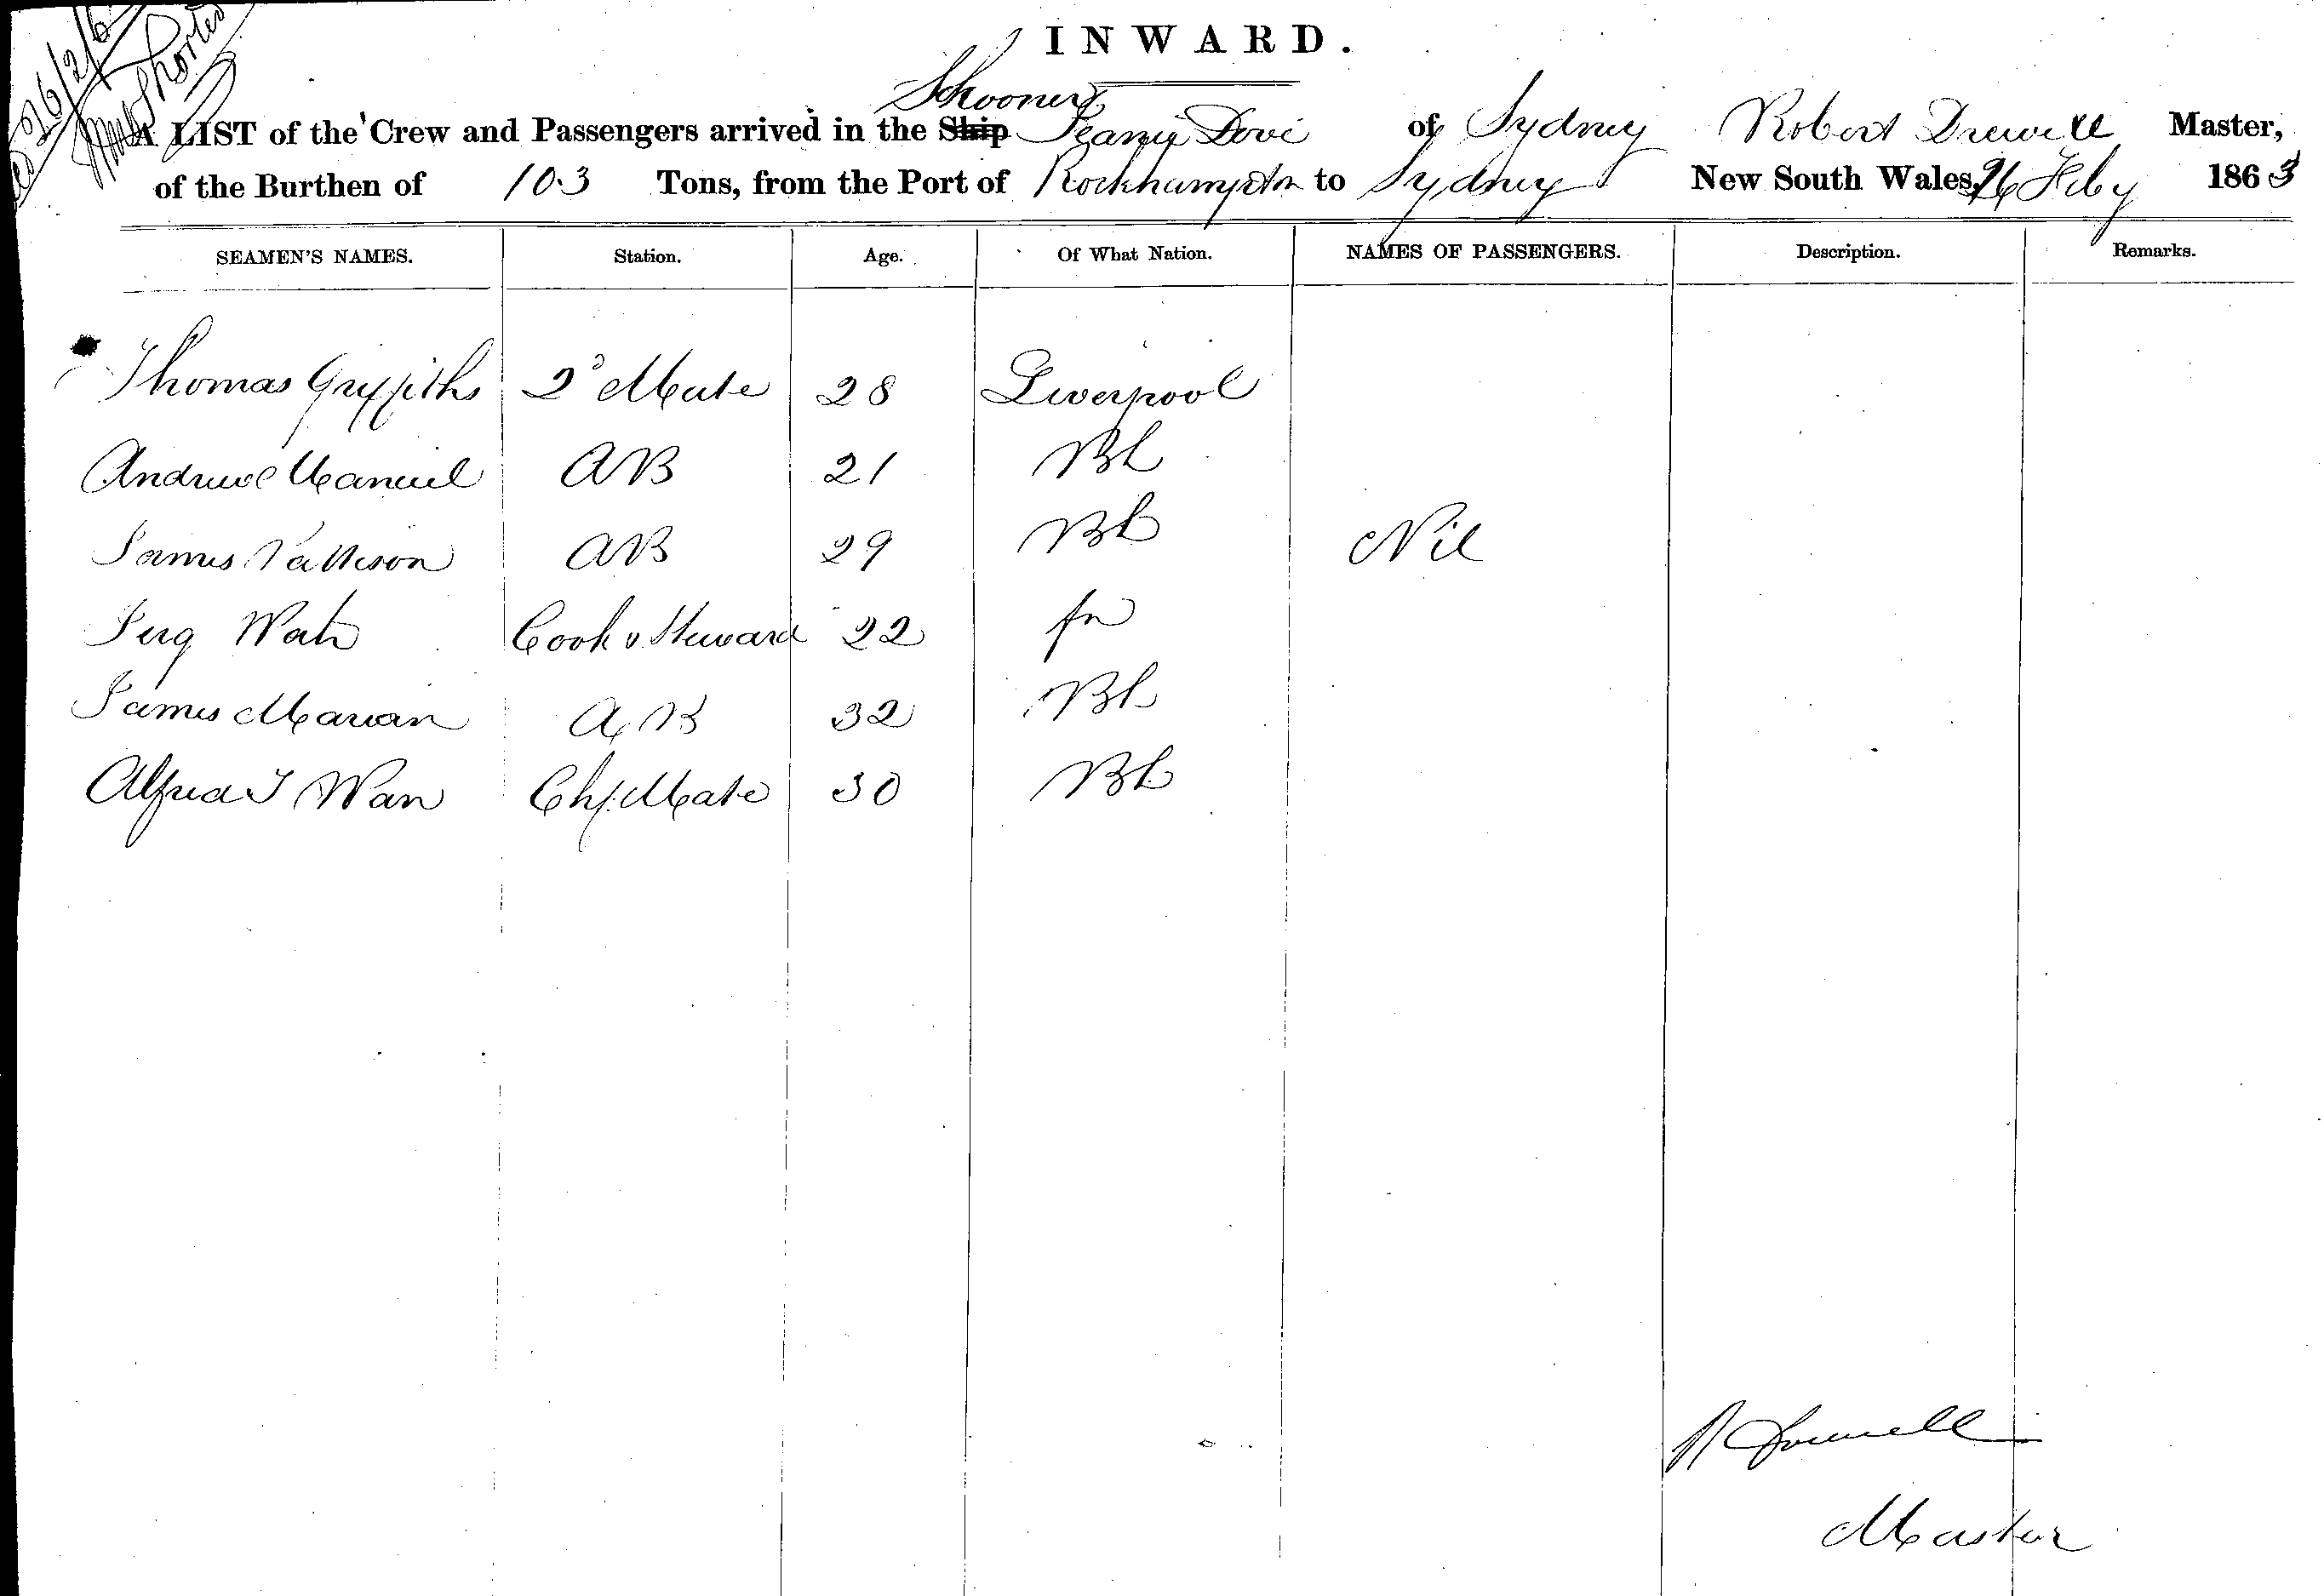 26/2/6
INWARD.
Schooner
A LIST of the Crew and Passengers arrived in the Ship Jeanie Dove of Sydney Robert Drewell Master,
of the Burthen of 103 Tons, from the Port of Rockhampton to Sydney New South Wales, 26 Feby 1863
SEAMEN'S NAMES. Station. Age. Of What Nation. NAMES OF PASSENGERS. Description. Remarks.
Thomas Griffiths 2d Mate 28 Liverpool
Andrew Manuel AB 21 Bh
James Pattison AB 29 Bh Nil
Cook & Steward 22 fn
James AB 32 Bh
Alfred J Chf. Mate 30 Bh
R Drewell
Master